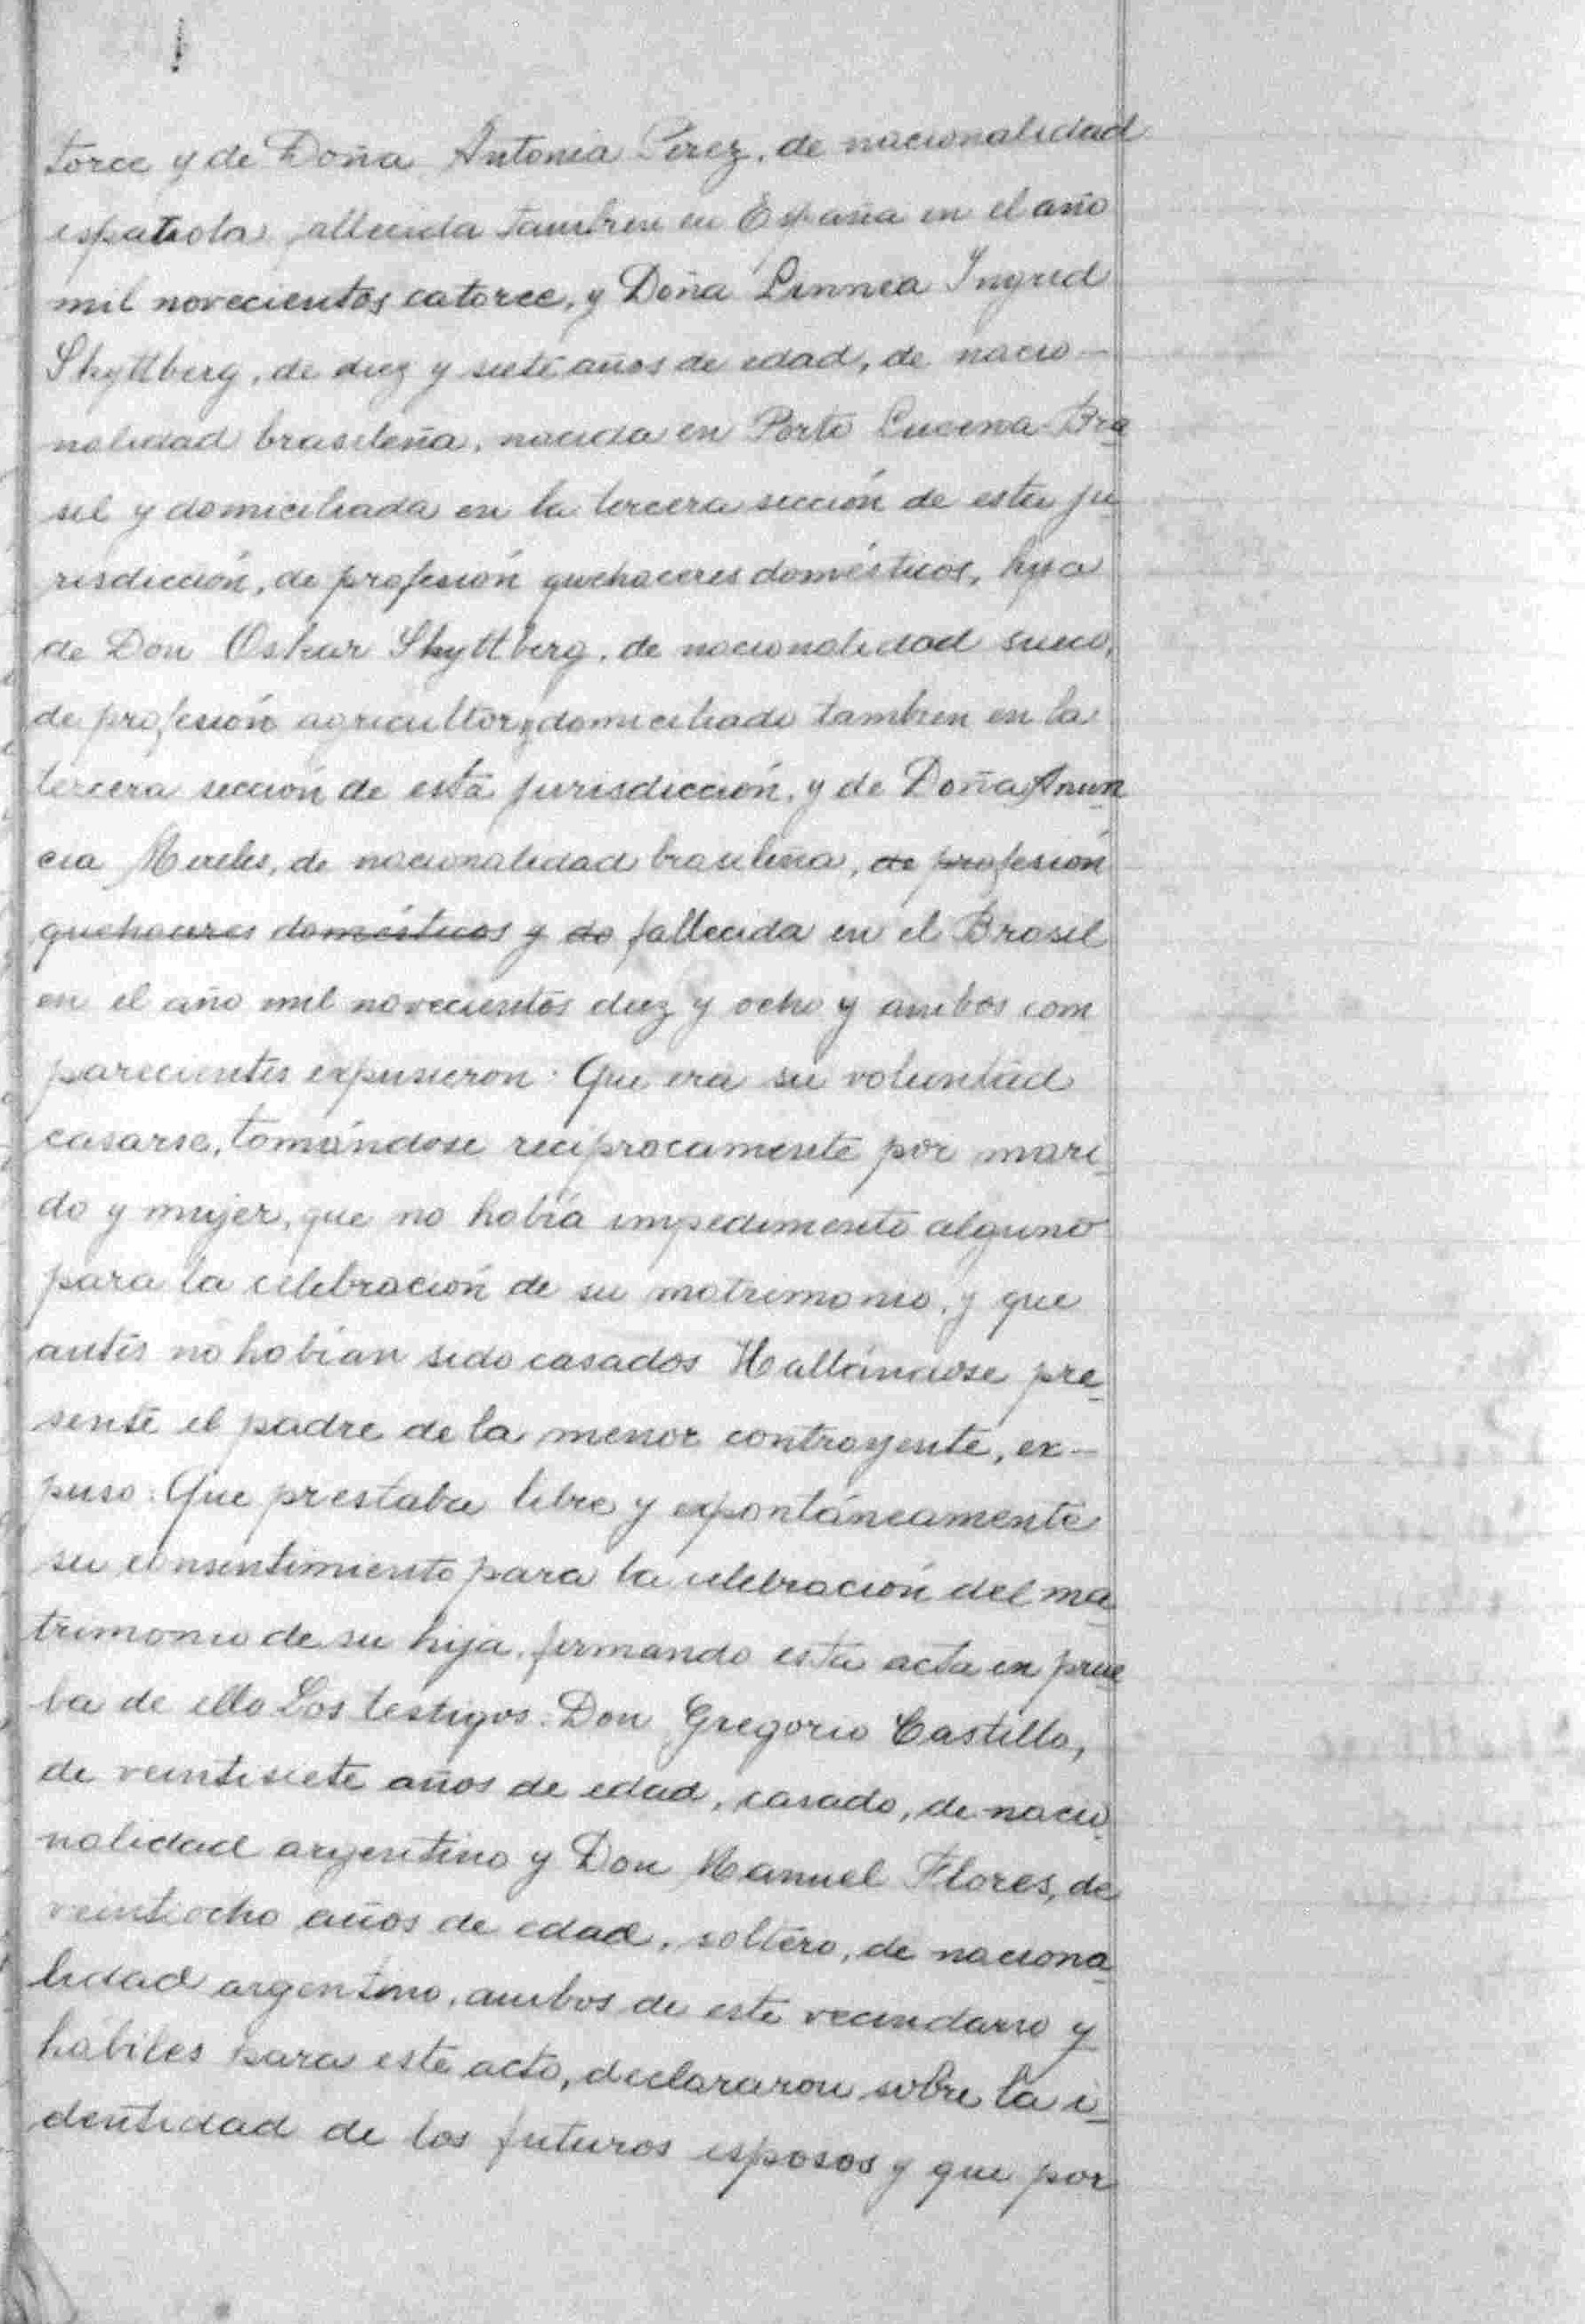 torce y de Doña Antonia Perez, de nacionalidad
española fallecida tambien en España en el año
mil novecientos catorce, y Doña Linnea Ingrid
Skyttberg, de diez y siete años de edad, de nacio-
nalidad brasileña, nacida en Porto Lucena Bra
sil y domiciliada en la tercera sección de esta ju
risdicción, de profesión quehaceres domésticos, hija
de Don Oskar Skyttberg, de nacionalidad sueco,
de profesión agricultor y domiciliado tambien en la
tercera sección de esta jurisdicción, y de Doña Anun
cia Mireles, de nacionalidad brasileña, de profesión
quehaceres domésticos y do fallecida en el Brasil
en el año mil novecientos diez y ocho y ambos com
parecientes expusieron: Que era su voluntad
casarse, tomándose reciprocamente por mari
do y mujer, que no había impedimento alguno
para la celebración de su matrimonio, y que
antes no habían sido casados Hallándose pre
sente el padre de la menor contrayente, ex-
puso: Que prestaba libre y expontáneamente
su consentimiento para la celebración del ma
trimonio de su hija, firmando esta acta en prue
ba de ello Los testigos: Don Gregorio Castillo,
de veintisiete años de edad, casado, de nacio
nalidad argentino y Don Manuel Flores, de
veintiocho años de edad, soltero, de naciona
lidad argentino, ambos de este vecindario y
hábiles para este acto, declararon sobre la i-
dentidad de los futuros esposos y que por